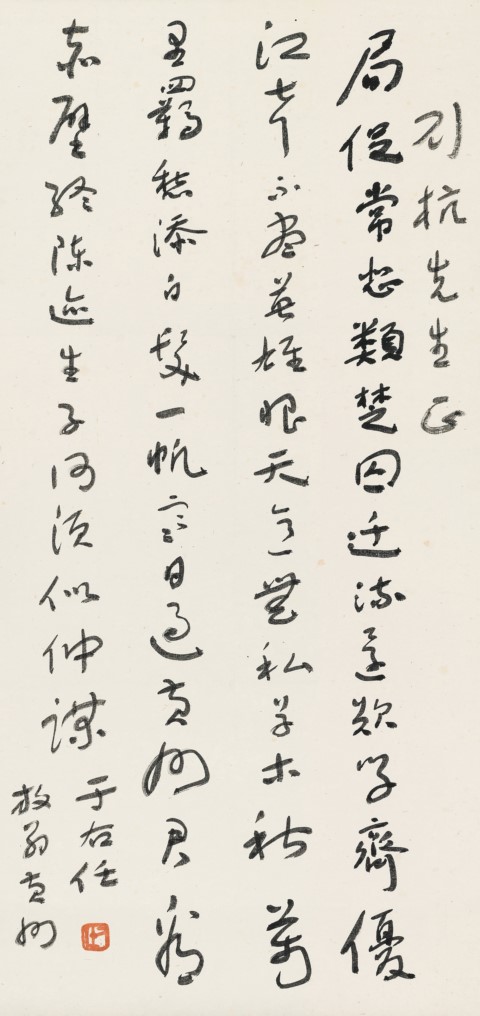 杭先生正
局促常悲類楚囚遷流還歎學齊優
江聲不盡英雄恨天意無私草木秋萬
里羈愁添白髮一帆寒日過黃州君看
赤壁終陳迹生子何須似仲謀
于右任
放翁黃州